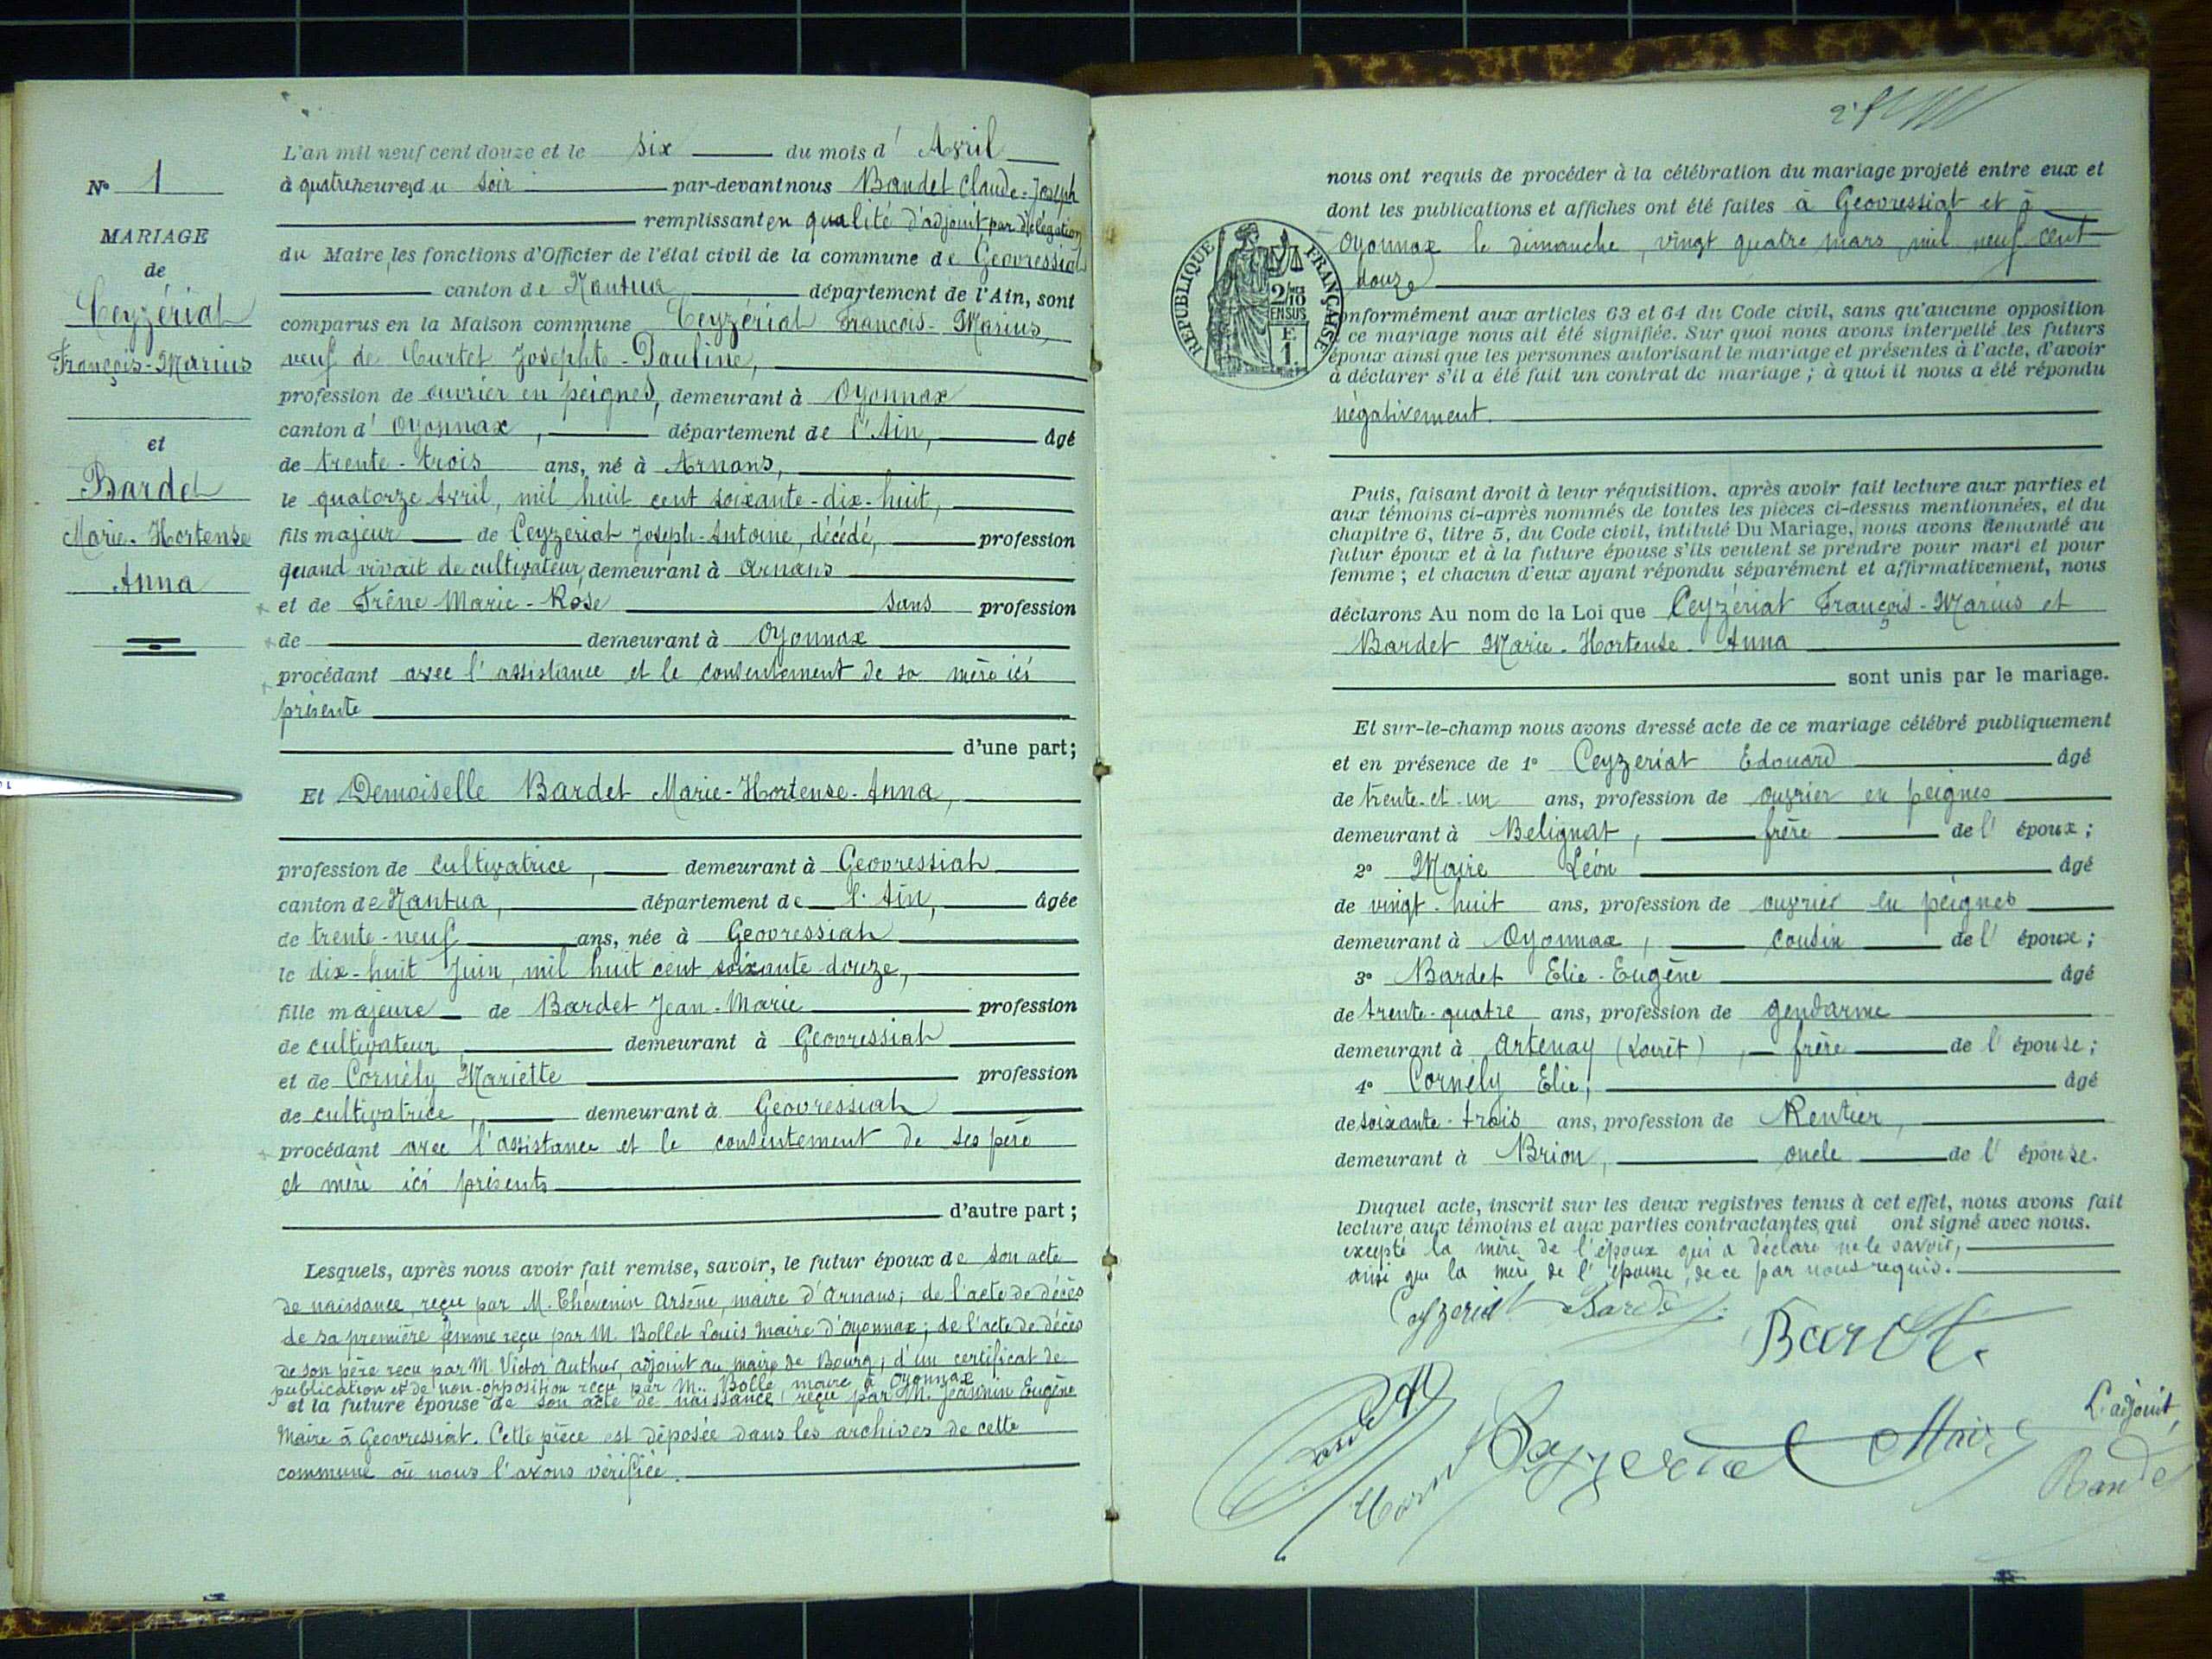 N° 1
MARIAGE
de
Ceyzériat
François-Marius
et
Bardet
Marie-Hortense
Anna
L'an mil neuf cent douze et le six du mois d' Avril
à quatre heures du soir par-devant nous Baudet Claude-Joseph
remplissant en qualité d'adjoint par délégation
du Maire les fonctions d'Officier de l'état civil de la commune de Geovressiat
canton de Nantua département de l'Ain, sont
comparus en la Maison commune Ceyzériat François-Marius,
veuf de Curtet Josephte-Pauline,
profession de ouvrier en peignes, demeurant à Oyonnax
canton d' Oyonnax, département de l'Ain, âgé
de trente-trois ans, né à Arnans,
le quatorze Avril, mil huit cent soixante-dix-huit,
fils majeur de Ceyzeriat Joseph-Antoine, décédé, profession
quand vivait de cultivateur, demeurant à Arnans
et de Frêne Marie-Rose sans profession
de demeurant à Oyonnax
procédant avec l'assistance et le consentement de sa mère ici
présente
d'une part;
Et Demoiselle Bardet Marie-Hortense-Anna,
profession de cultivatrice, demeurant à Geovressiat
canton de Nantua, département de l'Ain, âgée
de trente-neuf ans, née à Geovressiat
le dix-huit Juin, mil huit cent soixante douze,
fille majeure de Bardet Jean-Marie profession
de cultivateur demeurant à Geovressiat
et de Cornély Mariette profession
de cultivatrice, demeurant à Geovressiat
procédant avec l'assistance et le consentement de ses père
et mère ici présents
d'autre part;
Lesquels, après nous avoir fait remise, savoir, le futur époux de son acte
de naissance, reçu par M. Thévenin Arsène, maire d'Arnans; de l'acte de décès
de sa première femme reçu par M. Bollet Louis maire d'Oyonnax; de l'acte de décès
de son père reçu par M. Victor Authier, adjoint au maire de Bourg; d'un certificat de
publication et de non-opposition reçu par M. Bollé maire à Oyonnax
et la future épouse de son acte de naissance, reçu par M. Jeannin Eugène
Maire à Geovressiat. Cette pièce est déposée dans les archives de cette
commune où nous l'avons vérifiée.
nous ont requis de procéder à la célébration du mariage projeté entre eux et
dont les publications et affiches ont été faites à Geovressiat et à
Oyonnax le dimanche, vingt quatre mars, mil neuf cent
douze
RÉPUBLIQUE FRANÇAISE
2/10
EN SUS
E.
1.
conformément aux articles 63 et 64 du Code civil, sans qu'aucune opposition
ce mariage nous ait été signifiée. Sur quoi nous avons interpellé les futurs
époux ainsi que les personnes autorisant le mariage et présentes à l'acte, d'avoir
à déclarer s'il a été fait un contrat de mariage; à quoi il nous a été répondu
négativement.
Puis, faisant droit à leur réquisition, après avoir fait lecture aux parties et
aux témoins ci-après nommés de toutes les pièces ci-dessus mentionnées, et du
chapitre 6, titre 5, du Code civil, intitulé Du Mariage, nous avons demandé au
futur époux et à la future épouse s'ils veulent se prendre pour mari et pour
femme; et chacun d'eux ayant répondu séparément et affirmativement, nous
déclarons Au nom de la Loi que Ceyzériat François-Marius et
Bardet Marie-Hortense-Anna
sont unis par le mariage.
Et sur-le-champ nous avons dressé acte de ce mariage célébré publiquement
et en présence de 1° Ceyzeriat Edouard âgé
de trente-et-un ans, profession de ouvrier en peignes
demeurant à Belignat, frère de l' époux;
2° Maire Léon âgé
de vingt-huit ans, profession de ouvrier en peignes
demeurant à Oyonnax, cousin de l' époux;
3° Bardet Elie-Eugène âgé
de trente-quatre ans, profession de gendarme
demeurant à Artenay (Loiret), frère de l' épouse;
4° Cornély Elie, âgé
de soixante-trois ans, profession de Rentier,
demeurant à Brion, oncle de l' épouse.
Duquel acte, inscrit sur les deux registres tenus à cet effet, nous avons fait
lecture aux témoins et aux parties contractantes qui ont signé avec nous.
excepté la mère de l'époux qui a déclaré ne le savoir,
ainsi que la mère de l'épouse, de ce par nous requis.
Ceyzeriat Bardet
Bardet
Bardet
Ceyzeriat Maire
L'adjoint,
Baudet